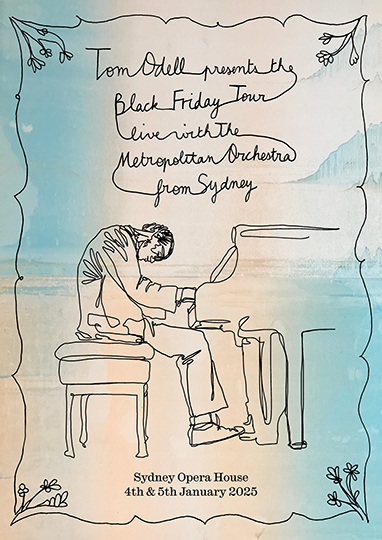 Tom Odell presents the
Black Friday Tour
live with the
Metropolitan Orchestra
from Sydney
Sydney Opera House
4th & 5th January 2025